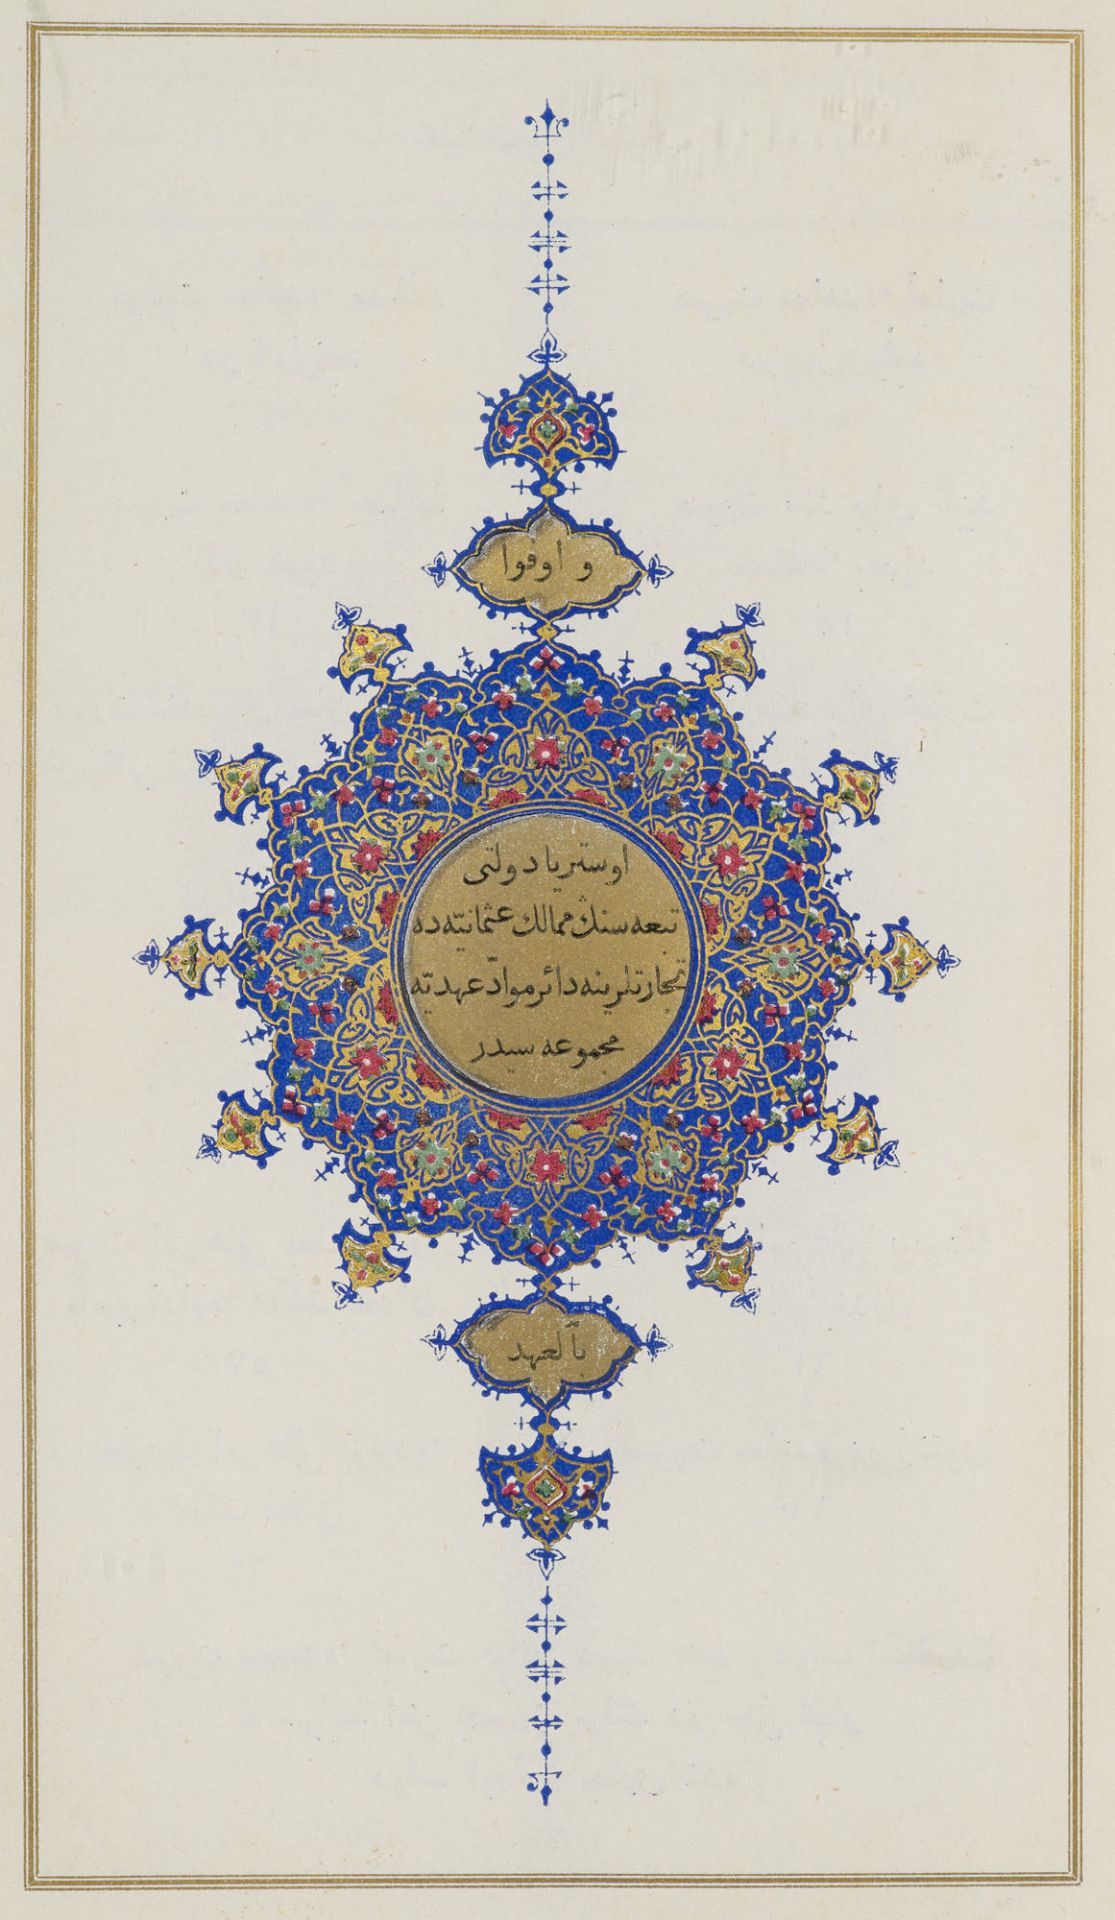 و اوفوا
اوستريا دولتى
تبعه سنڭ ممالك عثمانيّه ده
تجارتلرينه دائر موادّ عهديّه
مجموعه سيدر
بالعهد